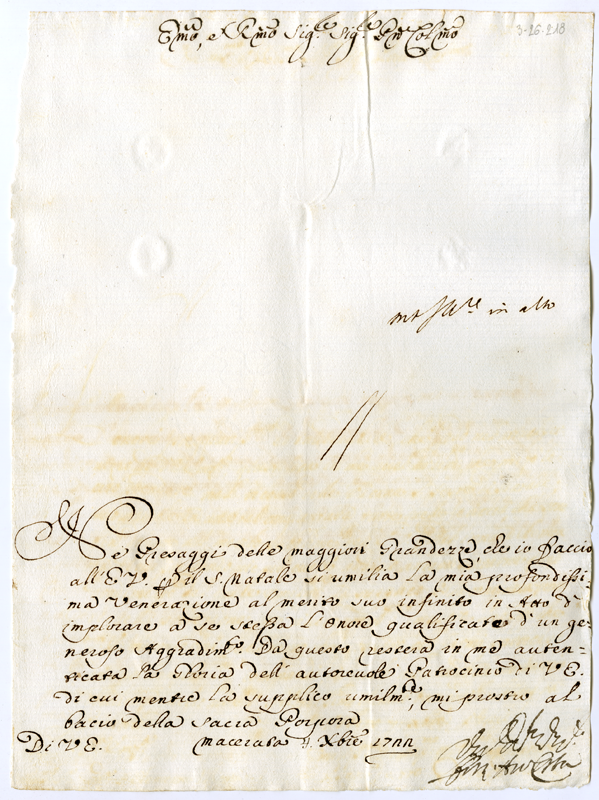 Emo, e Rmo Sig.re Sig.re Pne Colmo
3-26-218
in alto
Ne Presaggi delle maggiori Grandezze, che io faccio
all'E.V. p il S. Natale si umilia la mia profondissi-
ma Venerazione al merito suo infinito in Atto d'
implorare a se stessa l'Onore qualificato d'un ge-
neroso Aggradim.to. Da questo resterà in me auten-
ticata la Gloria dell'autorevole Patrocinio di V.E.
di cui mentre la supplico umilm.te, mi prostro al
bacio della Sacra Porpora
Di V.E. Macerata Xbre